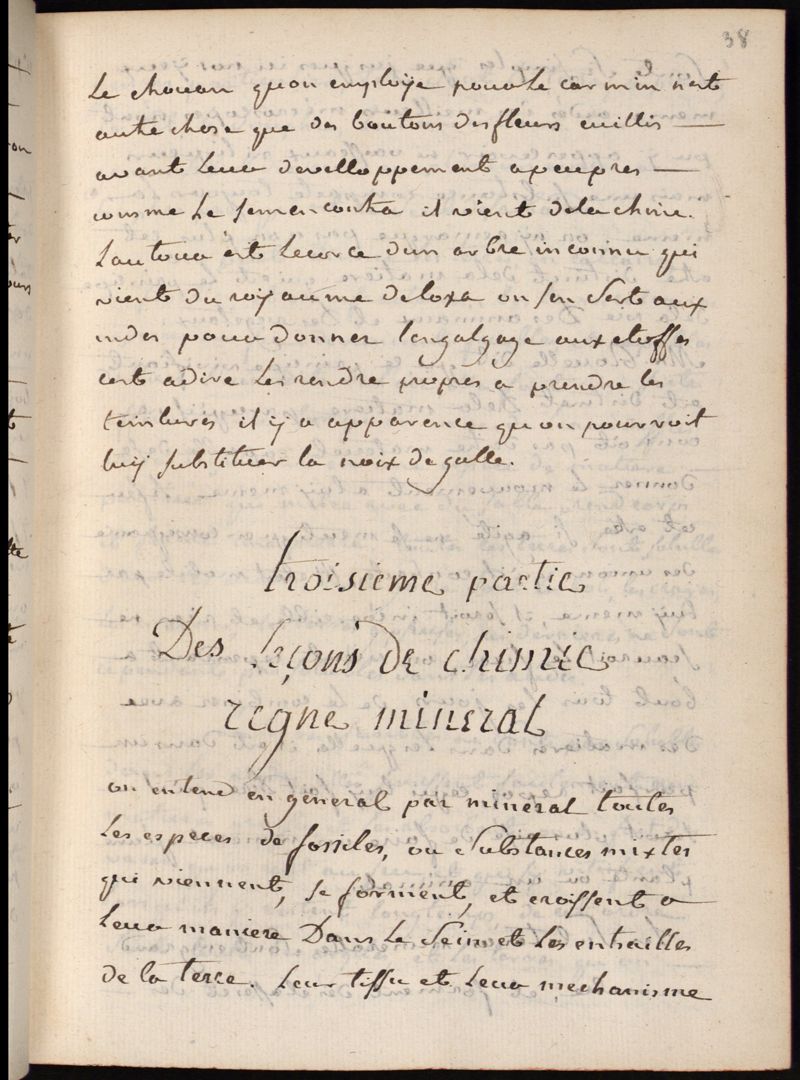 38
Le chouan quon employe pour le carmin n'est
autre chose que des boutons des fleurs cuillis —
avant leur developpement apeupres —
comme le semencontra il vient de la chine.
Lautour est lecorce dun arbre inconnu qui
vient du royaume de loxa on sen sert aux
indes pour donner lengalgage aux etoffes
cest adire les rendre propres a prendre les
teintures il y a apparence quon pourroit
luy substituer la noix de galle.
troisieme partie
Des leçons de chimie
regne mineral
on entend en general par mineral toutes
les especes de fossiles, ou substances mixtes
qui viennent, se forment, et croissent a
leur maniere Dans le Sein et les entrailles
de la terre. leur tissu et leur mechanisme